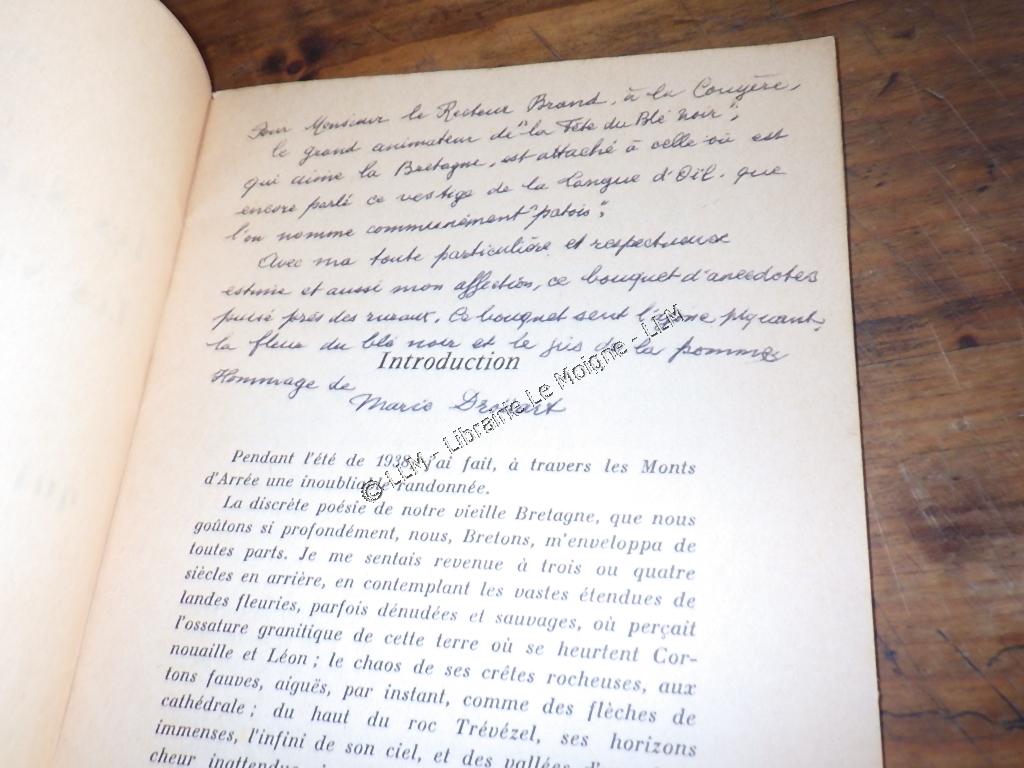 Pour Monsieur le Recteur Brand, à la Couyère,
le grand animateur de "la Fête du Blé noir",
qui aime la Bretagne, est attaché à celle où est
encore parlé ce vestige de la Langue d'Oïl, que
l'on nomme communément "patois",
Avec ma toute particulière et respectueuse
estime et aussi mon affection, ce bouquet d'anecdotes
puisé près des ruraux. Ce bouquet sent piquant,
la fleur du blé noir et le jus de la pomme
Introduction
Hommage de
© LLM - Librairie Le Moigne - LLM
Pendant l'été de j'ai fait, à travers les Monts
d'Arrée une inoubliable randonnée.
La discrète poésie de notre vieille Bretagne, que nous
goûtons si profondément, nous, Bretons, m'enveloppa de
toutes parts. Je me sentais revenue à trois ou quatre
siècles en arrière, en contemplant les vastes étendues de
landes fleuries, parfois dénudées et sauvages, où perçait
l'ossature granitique de cette terre où se heurtent Cor-
nouaille et Léon ; le chaos de ses crêtes rocheuses, aux
tons fauves, aiguës, par instant, comme des flèches de
cathédrale ; du haut du roc Trévézel, ses horizons
immenses, l'infini de son ciel, et des vallées